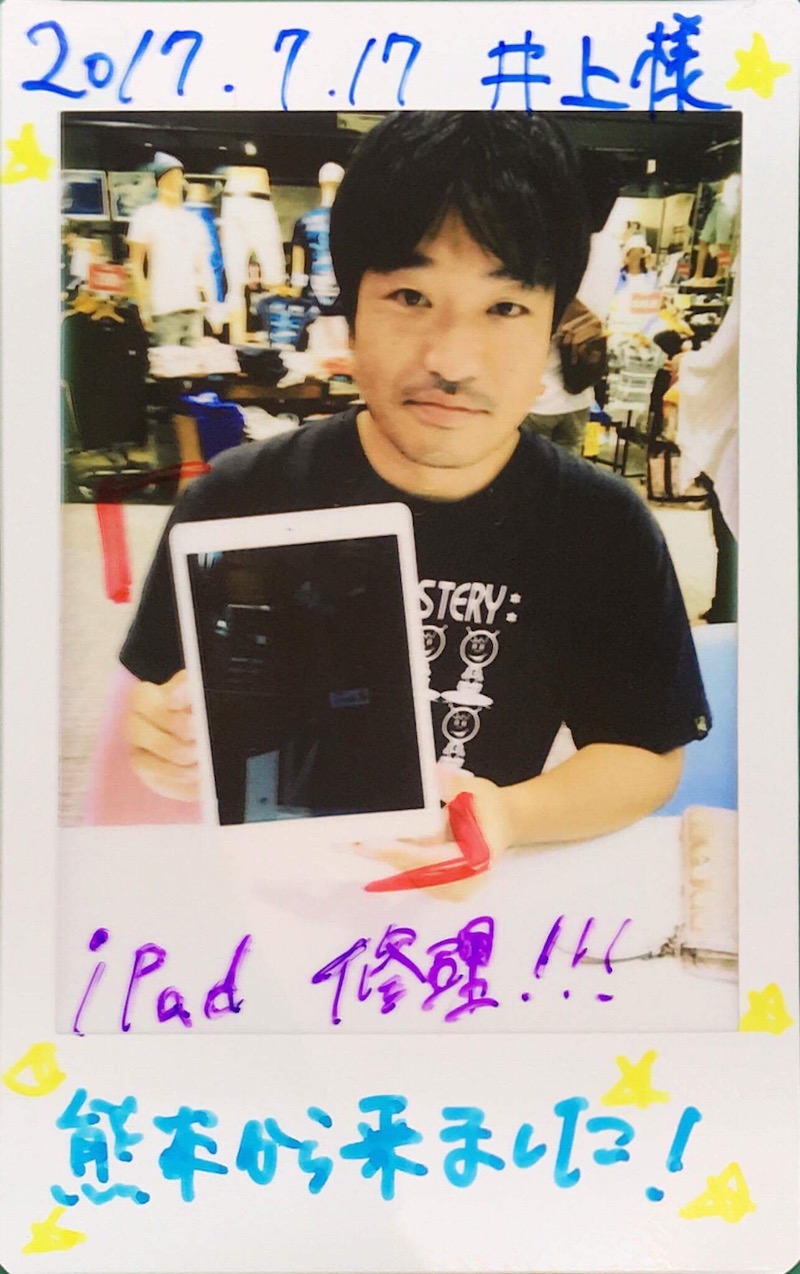 2017.7.17 井上様
STERY:
iPad 修理!!!
熊本から来ました!